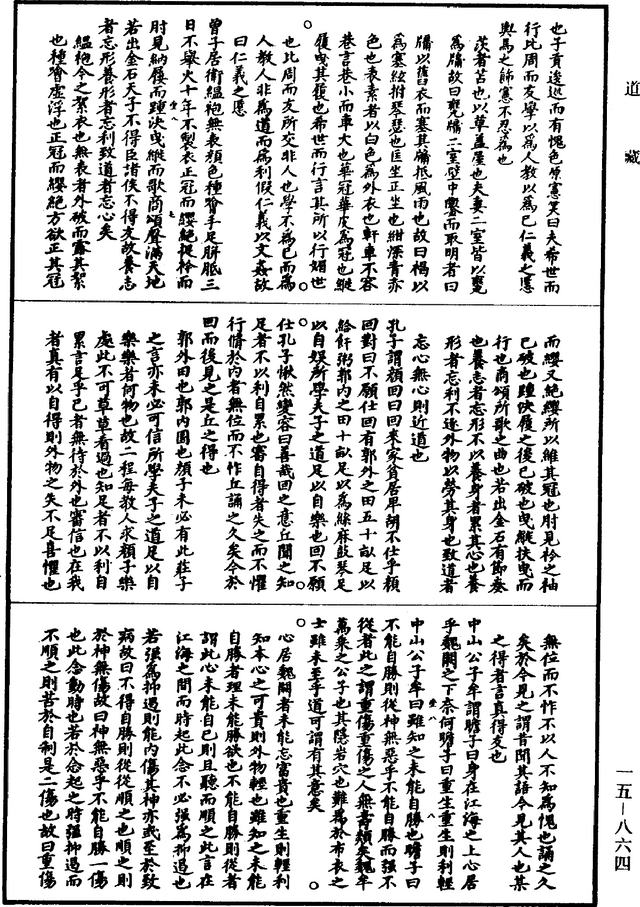 道藏
也子貢逡巡而有愧色原憲笑曰夫希世而
行比周而友學以為人教以為已仁義之慝
輿馬之飾憲不忍為也
茨者苫也以草蓋屋也夫妻二室皆以甕
為牖故曰甕牖二室壁中鑿而取明者曰
牖以舊衣而塞其牖抵風雨也故曰褐以
為塞絃拊琴瑟也匡坐正坐也紺深青亦
色也表素者以白色為外衣也軒車不容
巷言巷小而車大也華冠華皮為冠也縰
履曳其履也希世而行言其所以行媚世
也比周而友所交非人也學不為已而為
人教人非為道而為利假仁義以文姦故
曰仁義之慝
曾子居衛縕袍無表顏色種噲手足胼胝三
日不舉火十年不製衣正冠而纓絕捉衿而
肘見納屨而踵決曳縰而歌商頌聲滿天地
若出金石天子不得臣諸侯不得友故養志
者忘形養形者忘利致道者忘心矣
縕袍今之絮衣也無表者外破而露其絮
也種噲虛浮也正冠而纓絕方欲正其冠
而纓又絕纓所以維其冠也肘見衿之袖
已破也踵決履之後已破也曳縰扶曳而
行也商頌所歌之曲也若出金石有節奏
也養志者忘形不以養身者累其心也養
形者忘利不逐外物以勞其身也致道者
忘心無心則近道也
孔子謂顏回曰回來家貧居卑胡不仕乎顏
回對曰不願仕回有郭外之田五十畝足以
給飦粥郭內之田十畝足以為絲麻鼓琴足
以自娛所學夫子之道足以自樂也回不願
仕孔子愀然變容曰善哉回之意丘聞之知
足者不以利自累也審自得者失之而不懼
行脩於內者無位而不怍丘誦之久矣今於
回而後見之是丘之得也
郭外田也郭內園也顏子未必有此莊子
之言亦未必可信所學夫子之道足以自
樂樂者何物也故二程每教人求顏子樂
處此不可草草看過也知足者不以利自
累言足乎已者無待於外也審信也在我
者真有以自得則外物之失不足喜懼也
無位而不怍不以人不知為愧也誦之久
矣於今見之謂昔聞其語今見其人也某
之得者言真得友也
中山公子牟謂瞻子曰身在江海之上心居
乎魏闕之下奈何瞻子曰重生重生則利輕
中山公子牟曰雖知之未能自勝也瞻子曰
不能自勝則從神無惡乎不能自勝而強不
從者此之謂重傷重傷之人無壽類矣魏牟
萬乘之公子也其隱岩穴也難為於布衣之
士雖未至乎道可謂有其意矣
心居魏闕者未能忘富貴也重生則輕利
知本心之可貴則外物輕也雖知之未能
自勝者理未能勝欲也不能自勝則從者
謂此心未能自已則且聽而順之此言在
江海之間而時起此念不必強為抑遏也
若強為抑遏則能內傷其神亦或至於致
病故曰不得自勝則從從順之也順之則
於神無傷故曰神無惡乎不能自勝一傷
也此念動時也若於念起之時強抑遏而
不順之則苦於自制是二傷也故曰重傷
一五—八六四